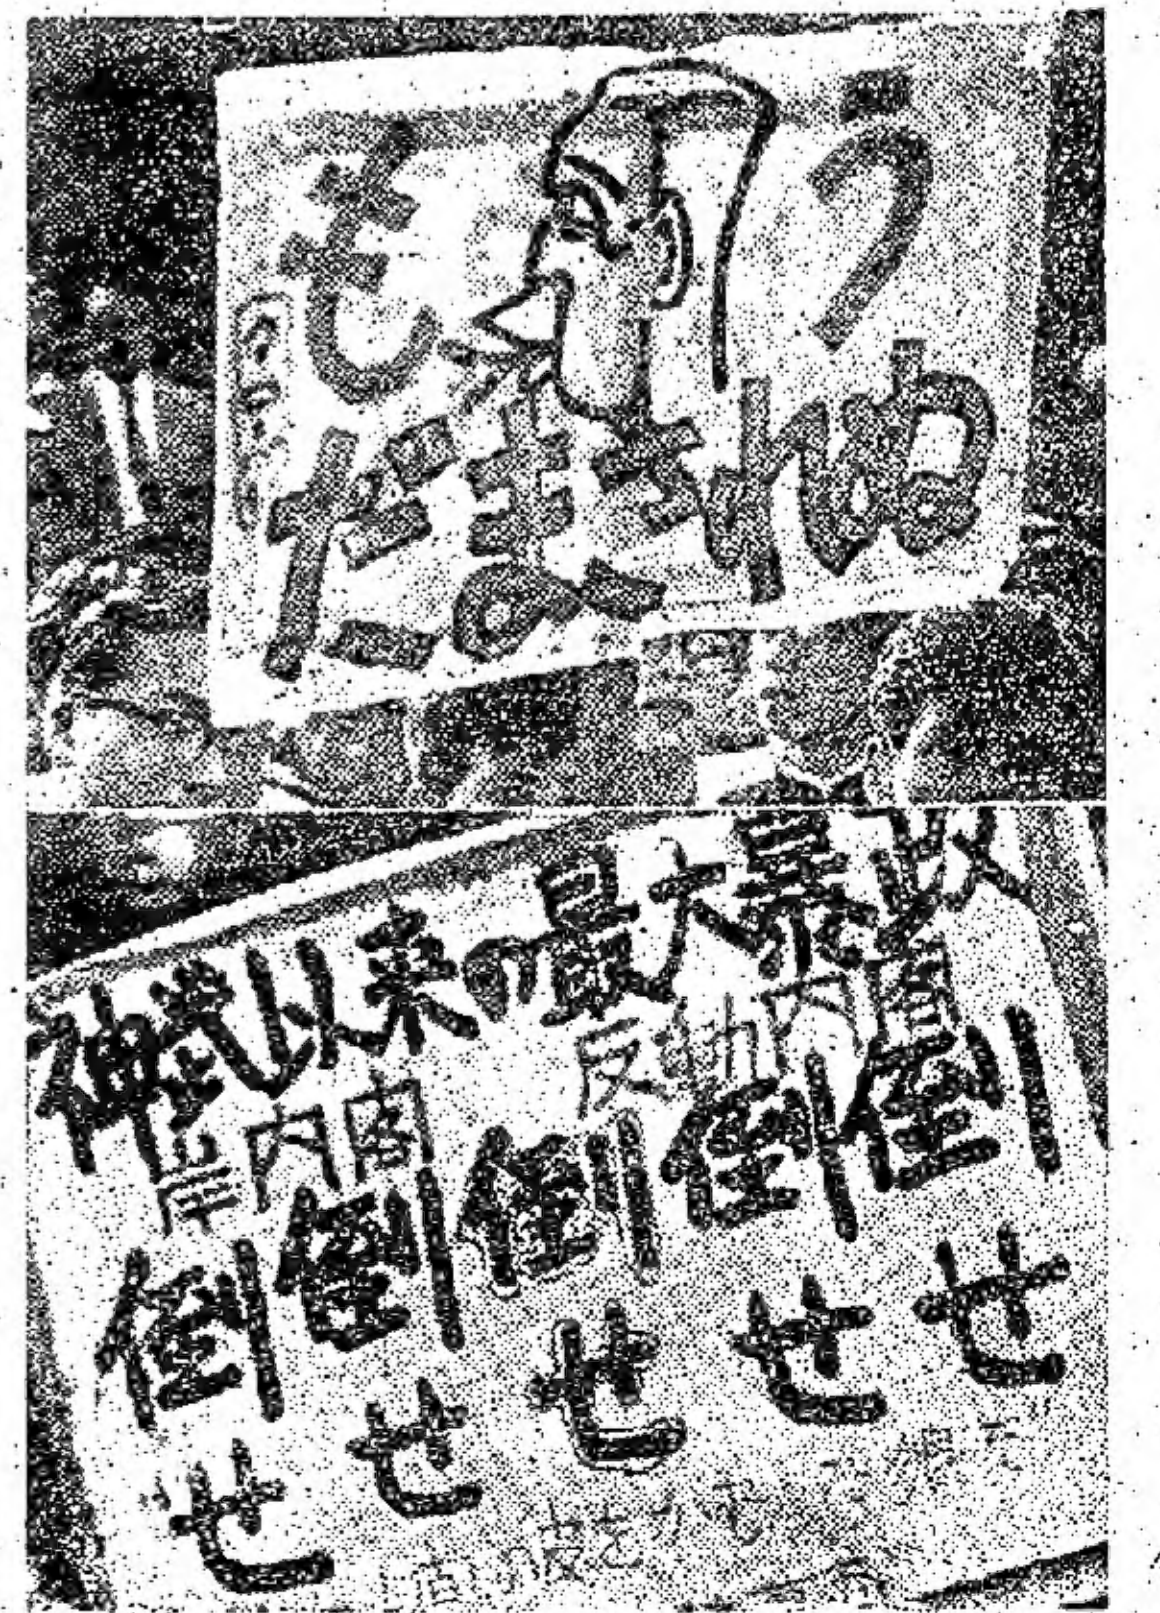 もう
だまされぬ
神武以来の最大暴政
岸内閣 反動内閣
倒倒倒倒倒
せせせせせ
の皮を